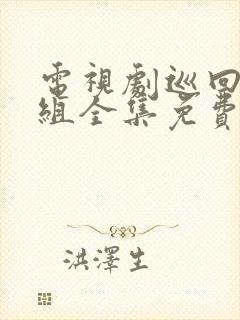 電視劇巡回
組全集免費
洪澤生